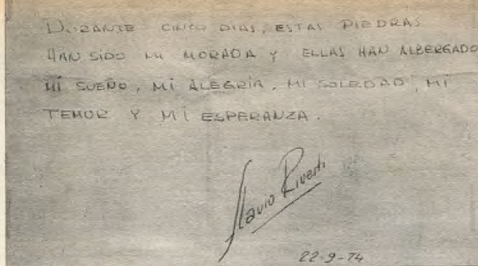 DURANTE CINCO DIAS, ESTAS PIEDRAS
HAN SIDO MI MORADA Y ELLAS HAN ALBERGADO
MI SUEÑO, MI ALEGRIA, MI SOLEDAD, MI
TEMOR Y MI ESPERANZA.
Flavio
22-9-74